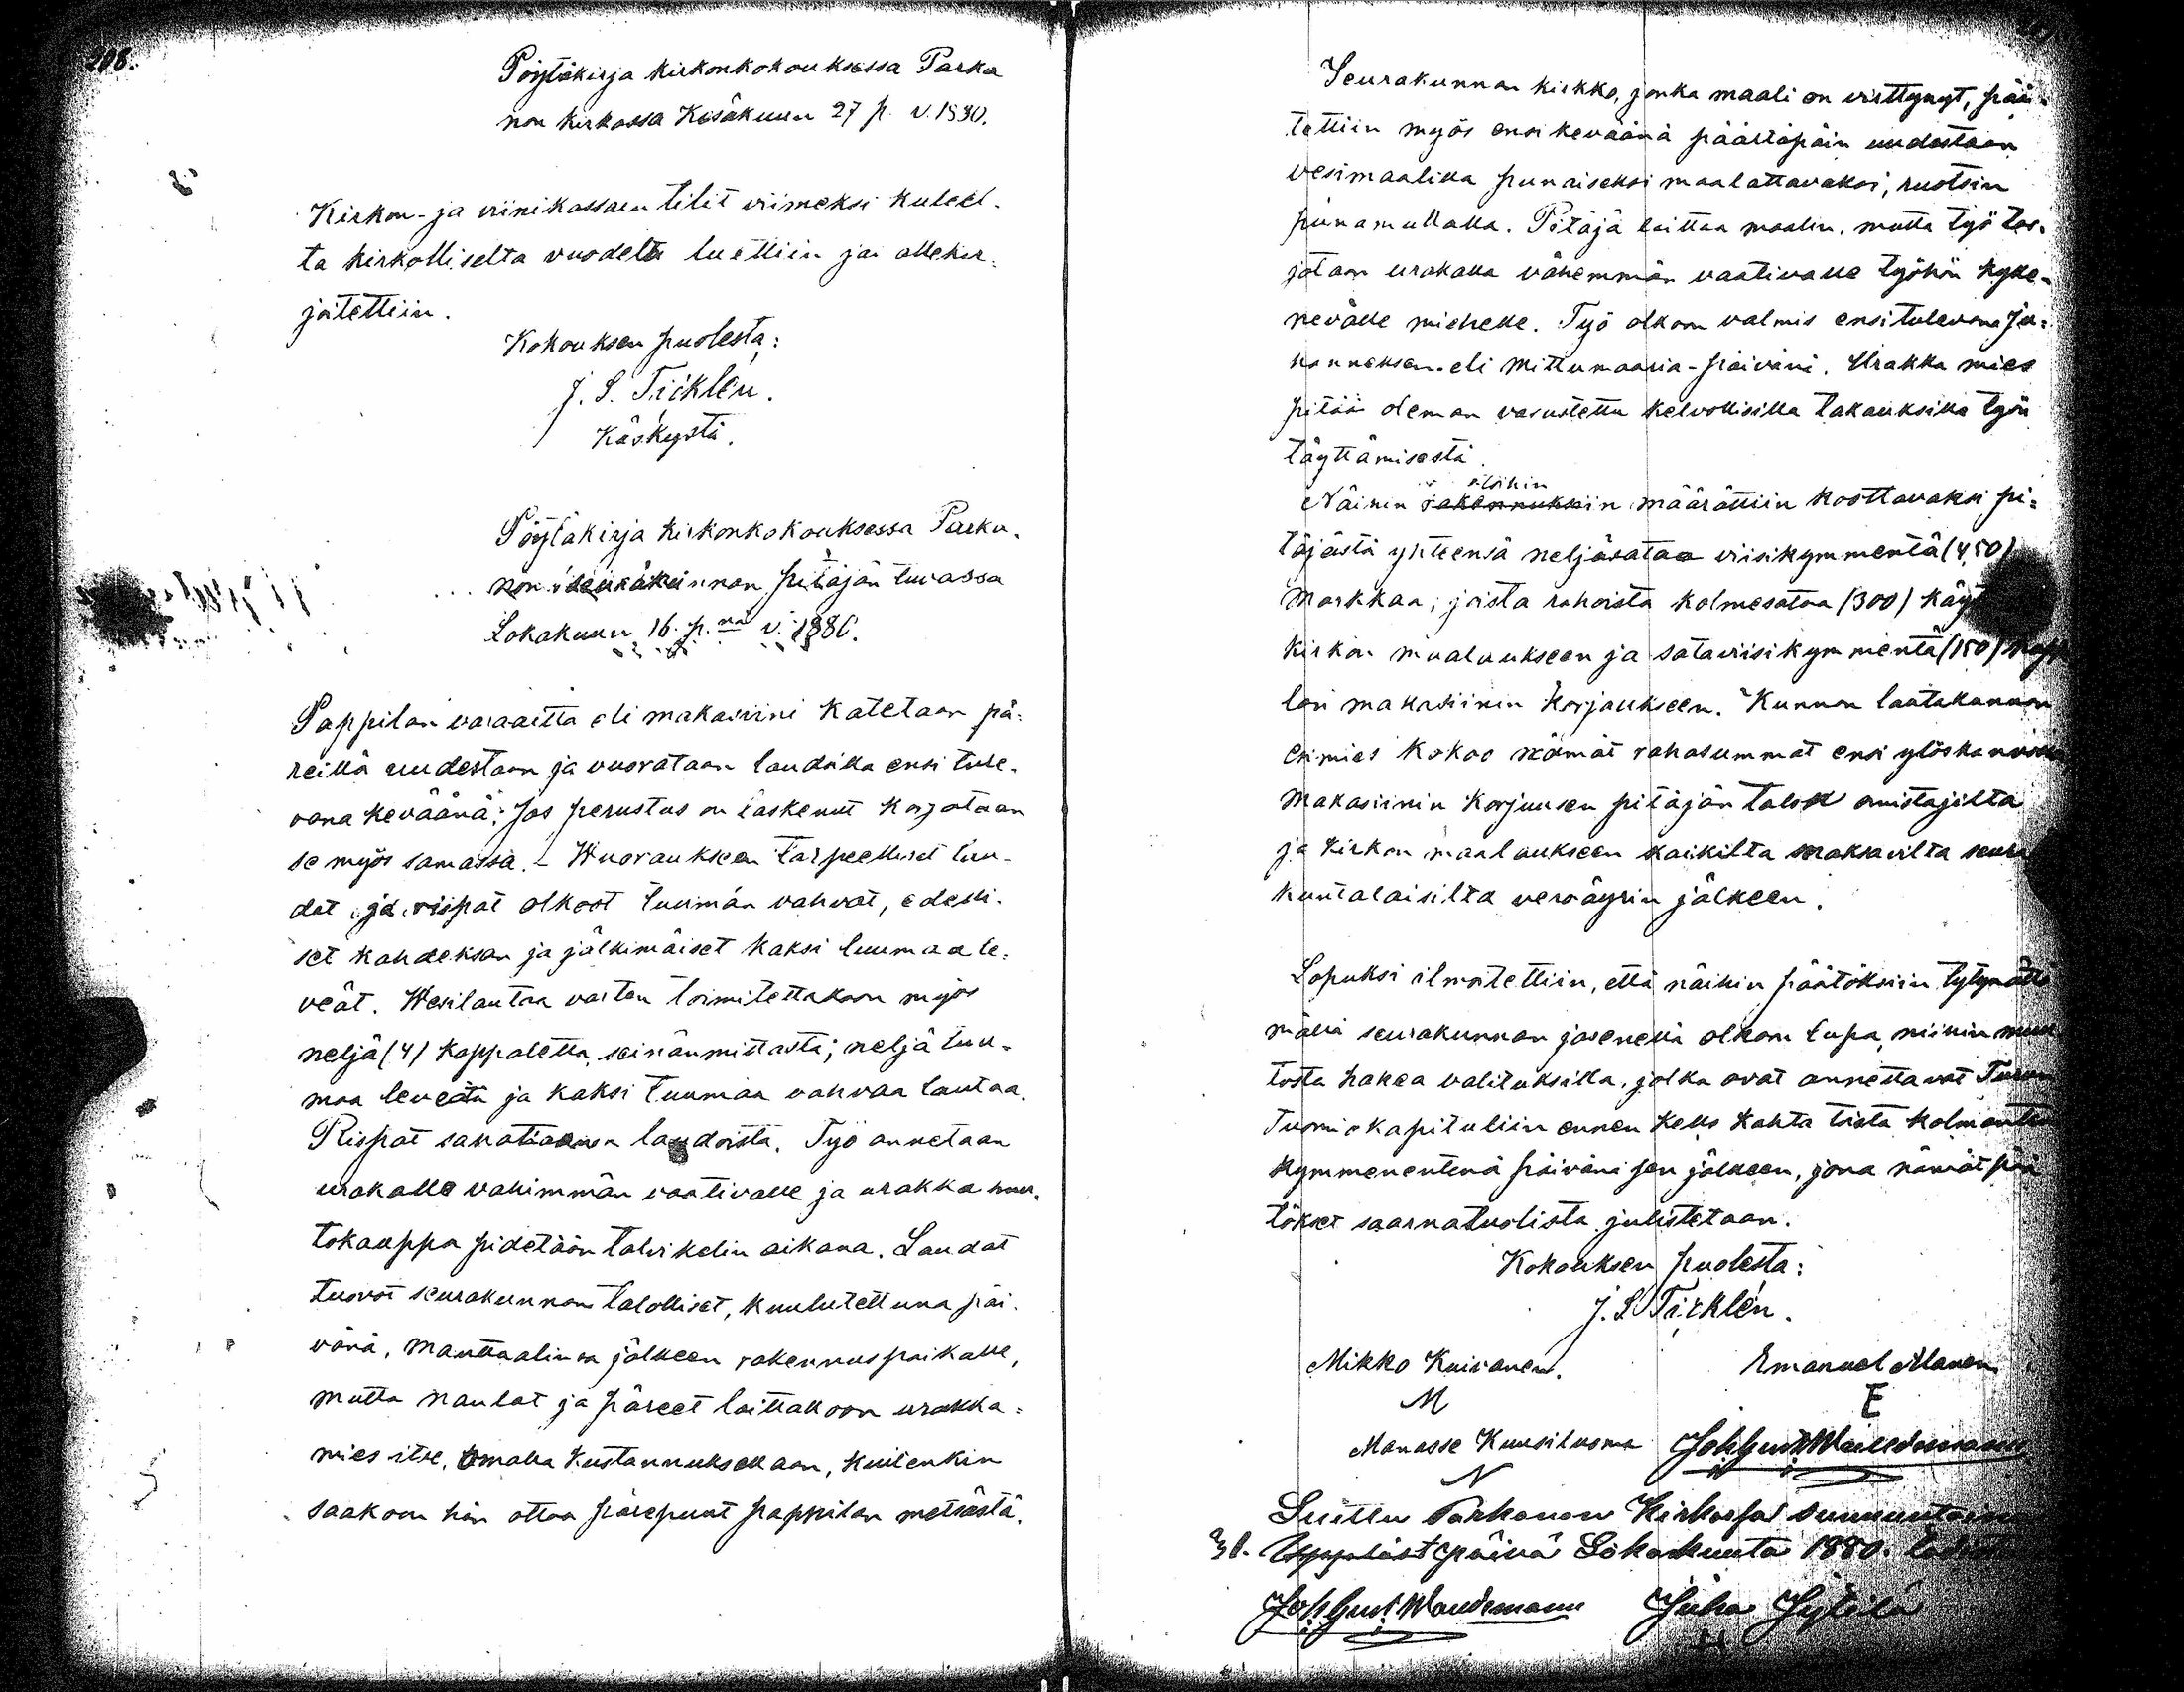 208.
Pöytäkirja kirkonkokouksessa Parka
non kirkossa Kesäkuun 27 p. v. 1880.
Kirkon- ja viinikassaen tilit viimeksi kuleel-
ta kirkolliselta vuodelta luettiin ja allekir-
joitettiin.
Kokouksen puolesta:
J. S. Ticklén.
Käskystä.
Pöytäkirja kirkonkokouksessa Parka-
non seurakunnan pitäjän tuvassa
Lokakuun 16. p.nä v. 1880.
Pappilan varaaitta eli makasiini katetaan pä-
reillä uudestaan ja vuorataan laudoilla ensi tule-
vana keväänä; Jos perustus on laskenut korjataan
se myös samassa. – Wuoraukseen tarpeelliset lau-
dat ja rispat olkoot tuuman vahvat, edelli-
set kahdeksan ja jälkimäiset kaksi tuumaa le-
veät. Wesilautaa varten toimitettakoon myös
neljä (4) kappaletta seinänmittasta; neljä tuu-
maa leveätä ja kaksi tuumaa vahvaa lautaa.
Rispat sahataan laudoista. Työ annetaan
urakalle vähimmän vaativalle ja urakka huu-
tokauppa pidetään talvikelin aikana. Laudat
tuovat seurakunnan talolliset, kuulutettuna päi-
vänä, manttaalinsa jälkeen rakennuspaikalle,
mutta naulat ja päreet laittakoon urakka-
mies itse, omalla kustannuksellaan, kuitenkin
saakoon hän ottaa pärepuut pappilan metsästä.
Seurakunnan kirkko, jonka maali on virttynyt, pää-
tettiin myös ensi keväänä päältäpäin uudestaan
vesimaalilla punaiseksi maalattavaksi, ruotsin
punamullalla. Pitäjä laittaa maalin, mutta työ tar-
jotaan urakalla vähemmän vaativalle työhön kyke-
nevälle miehelle. Työ olkoon valmis ensitulevana Ju-
hanneksen eli Mittumaaria-päivänä. Urakka mies
pitää oleman varustettu kelvollisilla takauksilla työn
täyttämisestä.
töihin
Näihin rakennuksiin määrättiin koottavaksi pi-
täjästä yhteensä neljäsataa viisikymmentä (450)
Markkaa; joista rahoista kolmesataa (300) käyt
kirkon maalaukseen ja sataviisikymmentä (150) Papp
lan makasiinin korjaukseen. Kunnan lautakunnan
esimies kokoo nämät rahasummat ensi ylöskannossa
makasiinin korjuusen pitäjän talon omistajilta
ja kirkon maalaukseen kaikilta maksavilta seura
kuntalaisilta veroäyrin jälkeen.
Lopuksi ilmoitettiin, että näihin päätöksiin tytymättö
mällä seurakunnan jäsenellä olkoon lupa, niihin muu
tosta hakea valituksilla, jotka ovat annettavat Turun
Tuomiokapituliin ennen kello kahta toista kolmante
kymmenentenä päivänä sen jälkeen, jona nämät pää
tökset saarnatuolista julistetaan.
Kokouksen puolesta:
J. S. Ticklén.
Mikko Kuivanen. Emanuel Alanen
M E
Manasse Kuusiluoma Joh Gust Wandemann
Luettu Parkanon Kirkossa sunnuntaina
31. päivä Lokakuuta 1880.
Joh Gust Wandemann Juha Jytilä